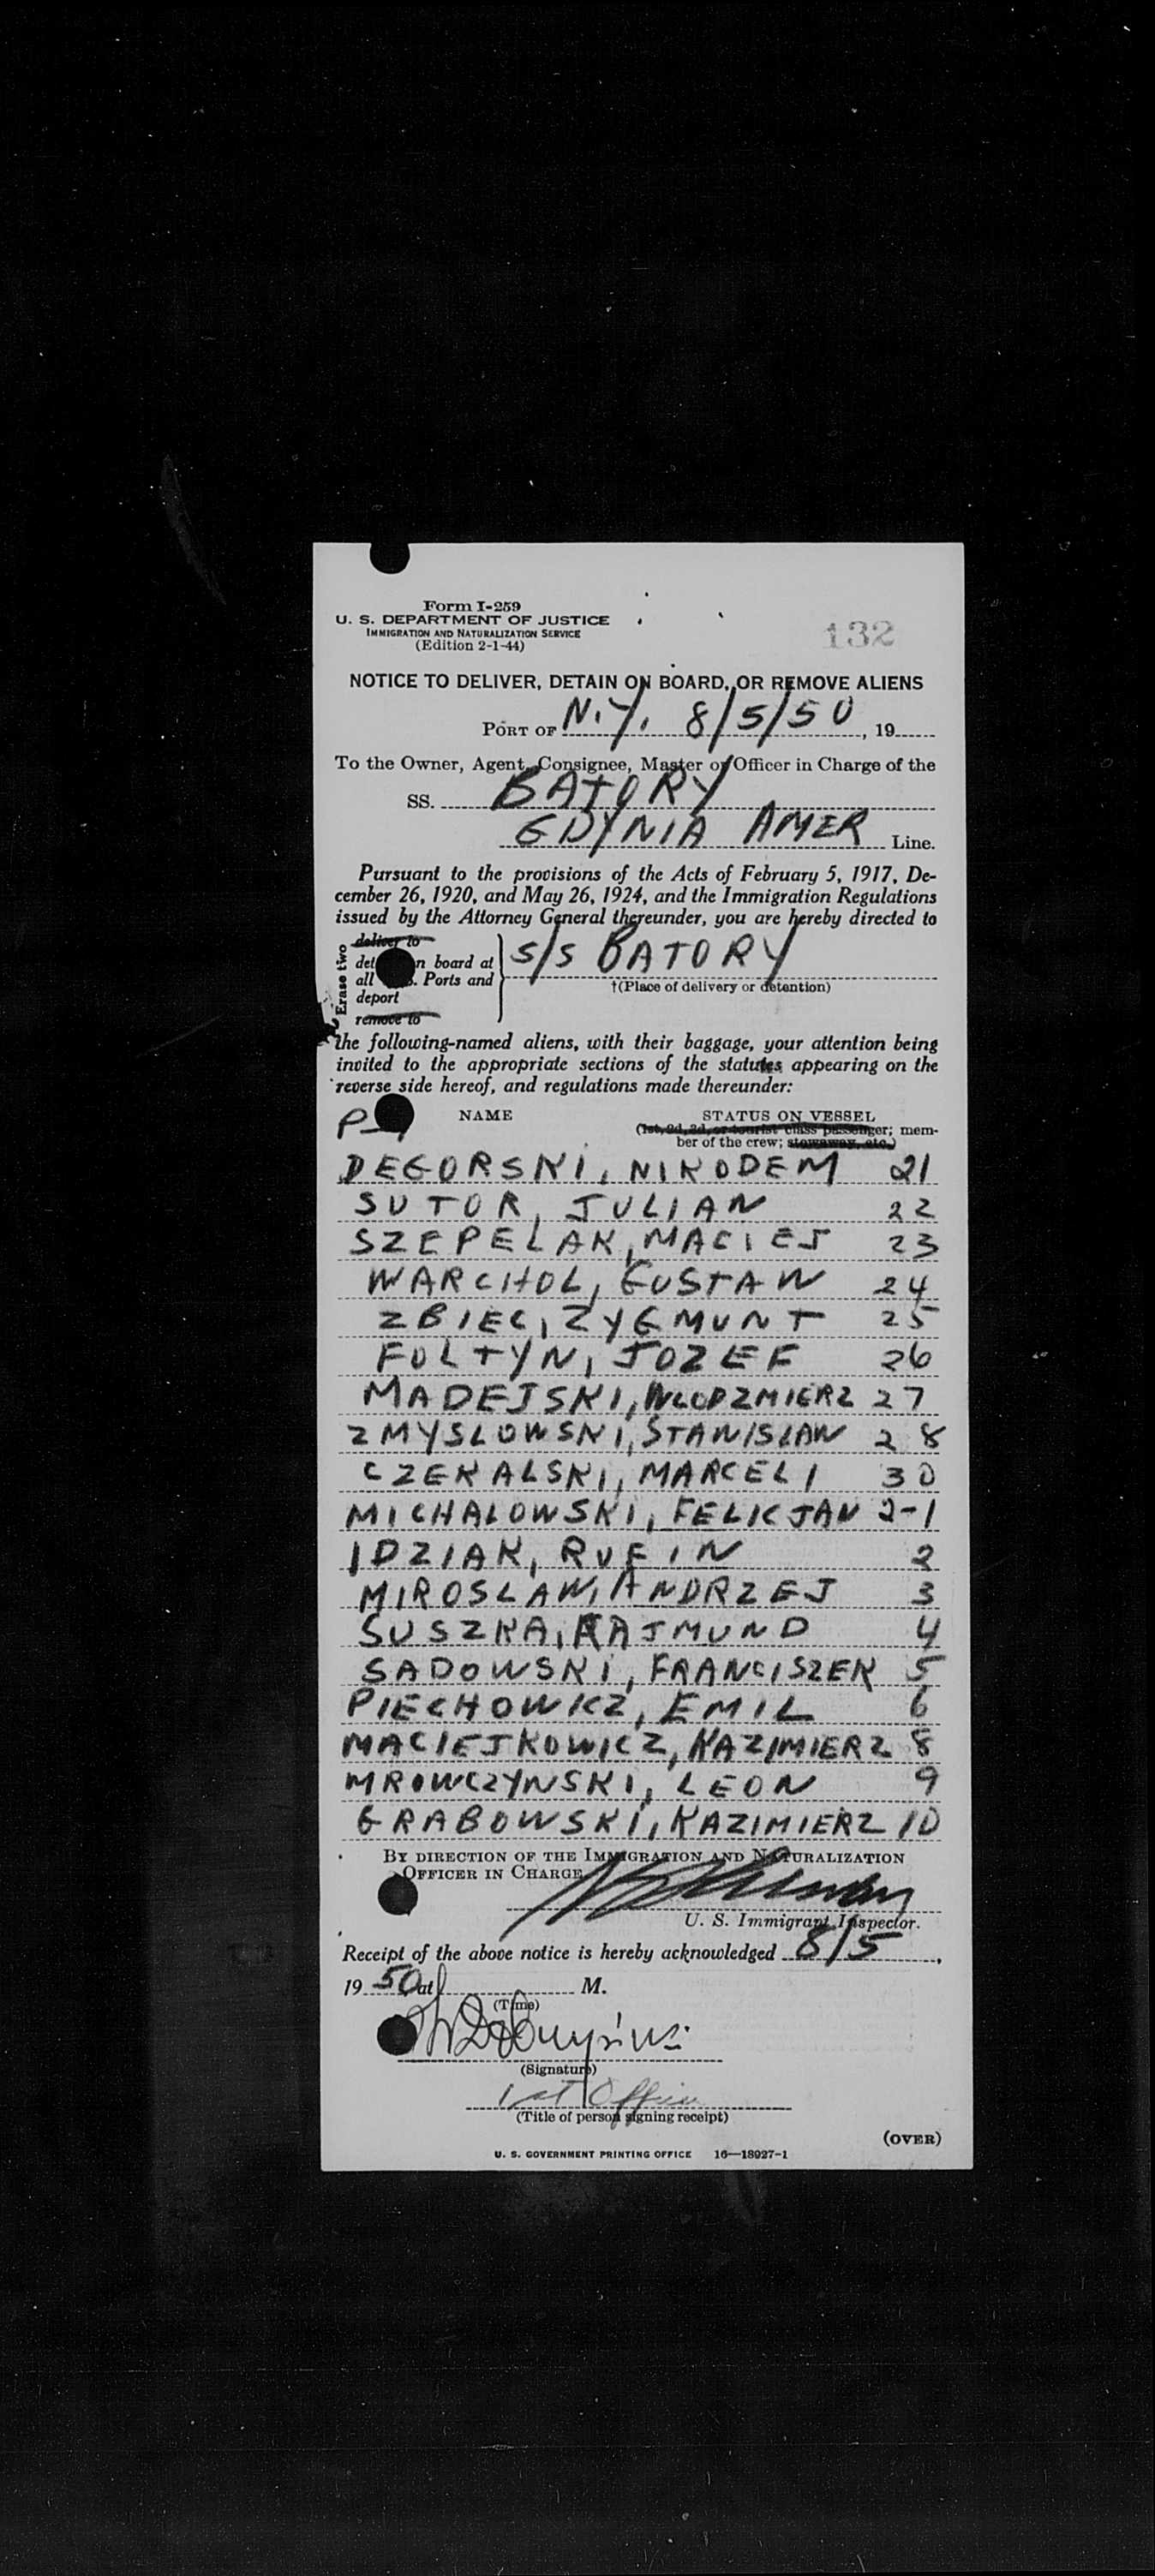 Form I-259
U. S. DEPARTMENT OF JUSTICE
IMMIGRATION AND NATURALIZATION SERVICE
(Edition 2-1-44)
132
NOTICE TO DELIVER, DETAIN ON BOARD, OR REMOVE ALIENS
PORT OF N.Y. 8/5/50, 19
To the Owner, Agent, Consignee, Master or Officer in Charge of the
SS. BATORY
GDYNIA AMER Line.
Pursuant to the provisions of the Acts of February 5, 1917, De-
cember 26, 1920, and May 26, 1924, and the Immigration Regulations
issued by the Attorney General thereunder, you are hereby directed to
Erase two
deliver to
board at
all Ports and
deport
remove to
S/S BATORY
†(Place of delivery or detention)
the following-named aliens, with their baggage, your attention being
invited to the appropriate sections of the statutes appearing on the
reverse side hereof, and regulations made thereunder:
NAME STATUS ON VESSEL
(1st, 2d, 3d, or tourist class passenger; mem-
ber of the crew; stowaway, etc.)
DEGORSKI, NIKODEM 21
SUTOR, JULIAN 22
SZEPELAK, MACIEJ 23
WARCHOL, GUSTAW 24
ZBIEC, ZYGMUNT 25
FOLTYN, JOZEF 26
MADEJSKI, WLODZMIERZ 27
ZMYSLOWSKI, STANISLAW 28
CZEKALSKI, MARCELI 30
MICHALOWSKI, FELICJAN 2-1
IDZIAK, RUFIN 2
MIROSLAW, ANDRZEJ 3
SUSZKA, RAJMUND 4
SADOWSKI, FRANCISZEK 5
PIECHOWICZ, EMIL 6
MACIEJKOWICZ, KAZIMIERZ 8
MROWCZYNSKI, LEON 9
GRABOWSKI, KAZIMIERZ 10
BY DIRECTION OF THE IMMIGRATION AND NATURALIZATION
OFFICER IN CHARGE
U. S. Immigrant Inspector.
Receipt of the above notice is hereby acknowledged 8/5,
19 50 at M.
(Time)
(Signature)
1st Office
(Title of person signing receipt)
(OVER)
U. S. GOVERNMENT PRINTING OFFICE 16—18027-1